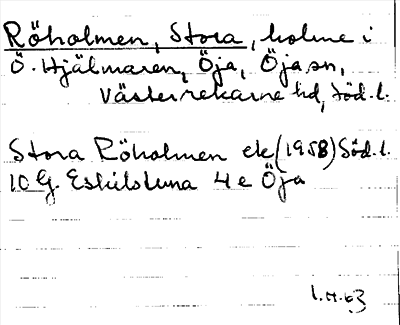 Röholmen, Stora, holme i
Ö. Hjälmaren, Öja, Öja sn,
Västerrekarne hd, Söd. l.
Stora Röholmen ek (1958) Söd. l.
10 G. Eskilstuna 4 e Öja
63